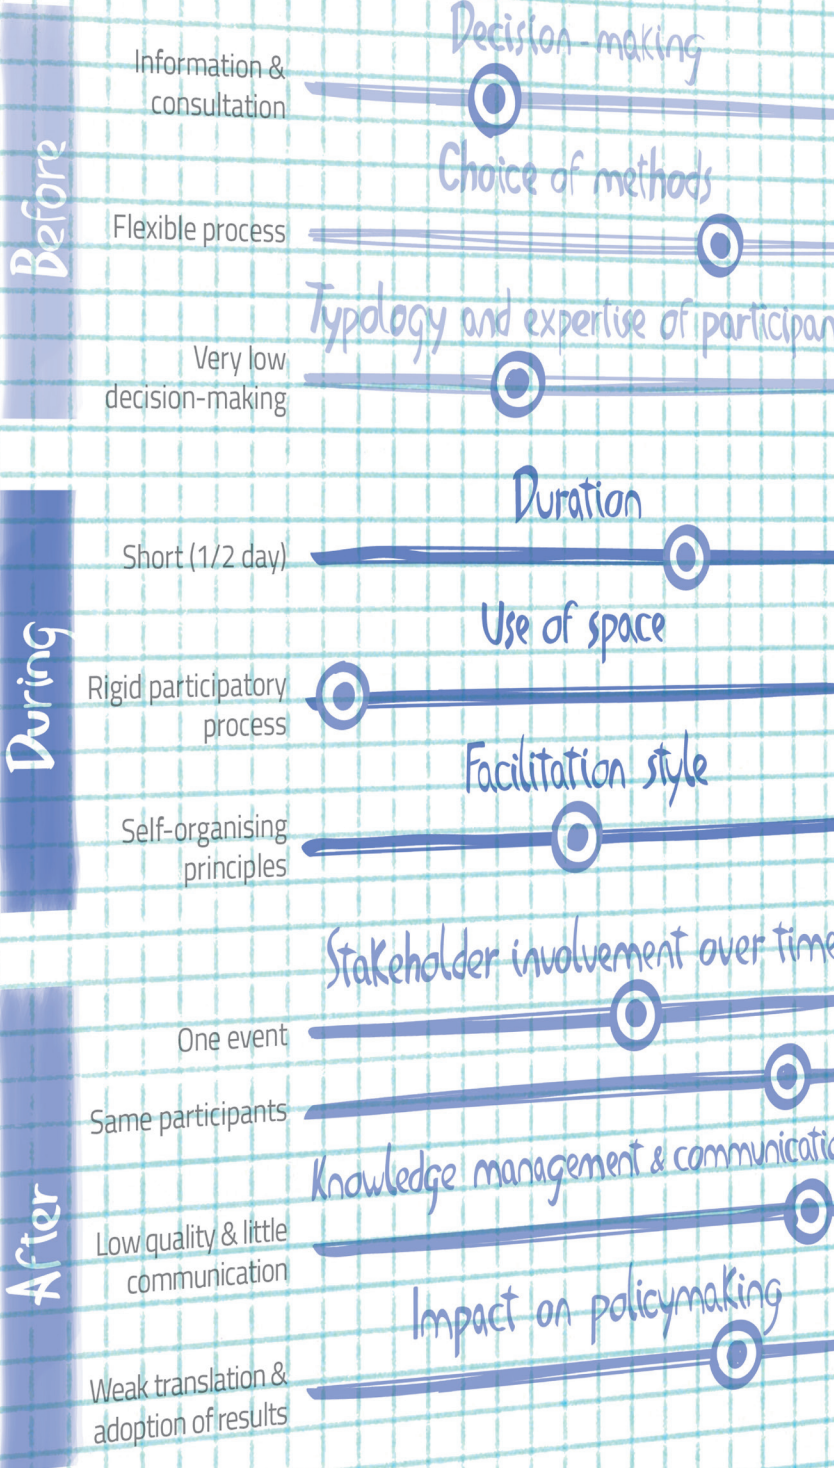 Before
Decision-making
Information &
consultation
Choice of methods
Flexible process
Typology and expertise of participan
Very low
decision-making
During
Duration
Short (1/2 day)
Use of space
Rigid participatory
process
Facilitation style
Self-organising
principles
After
Stakeholder involvement over time
One event
Same participants
Knowledge management & communicatio
Low quality & little
communication
Impact on policymaking
Weak translation &
adoption of results